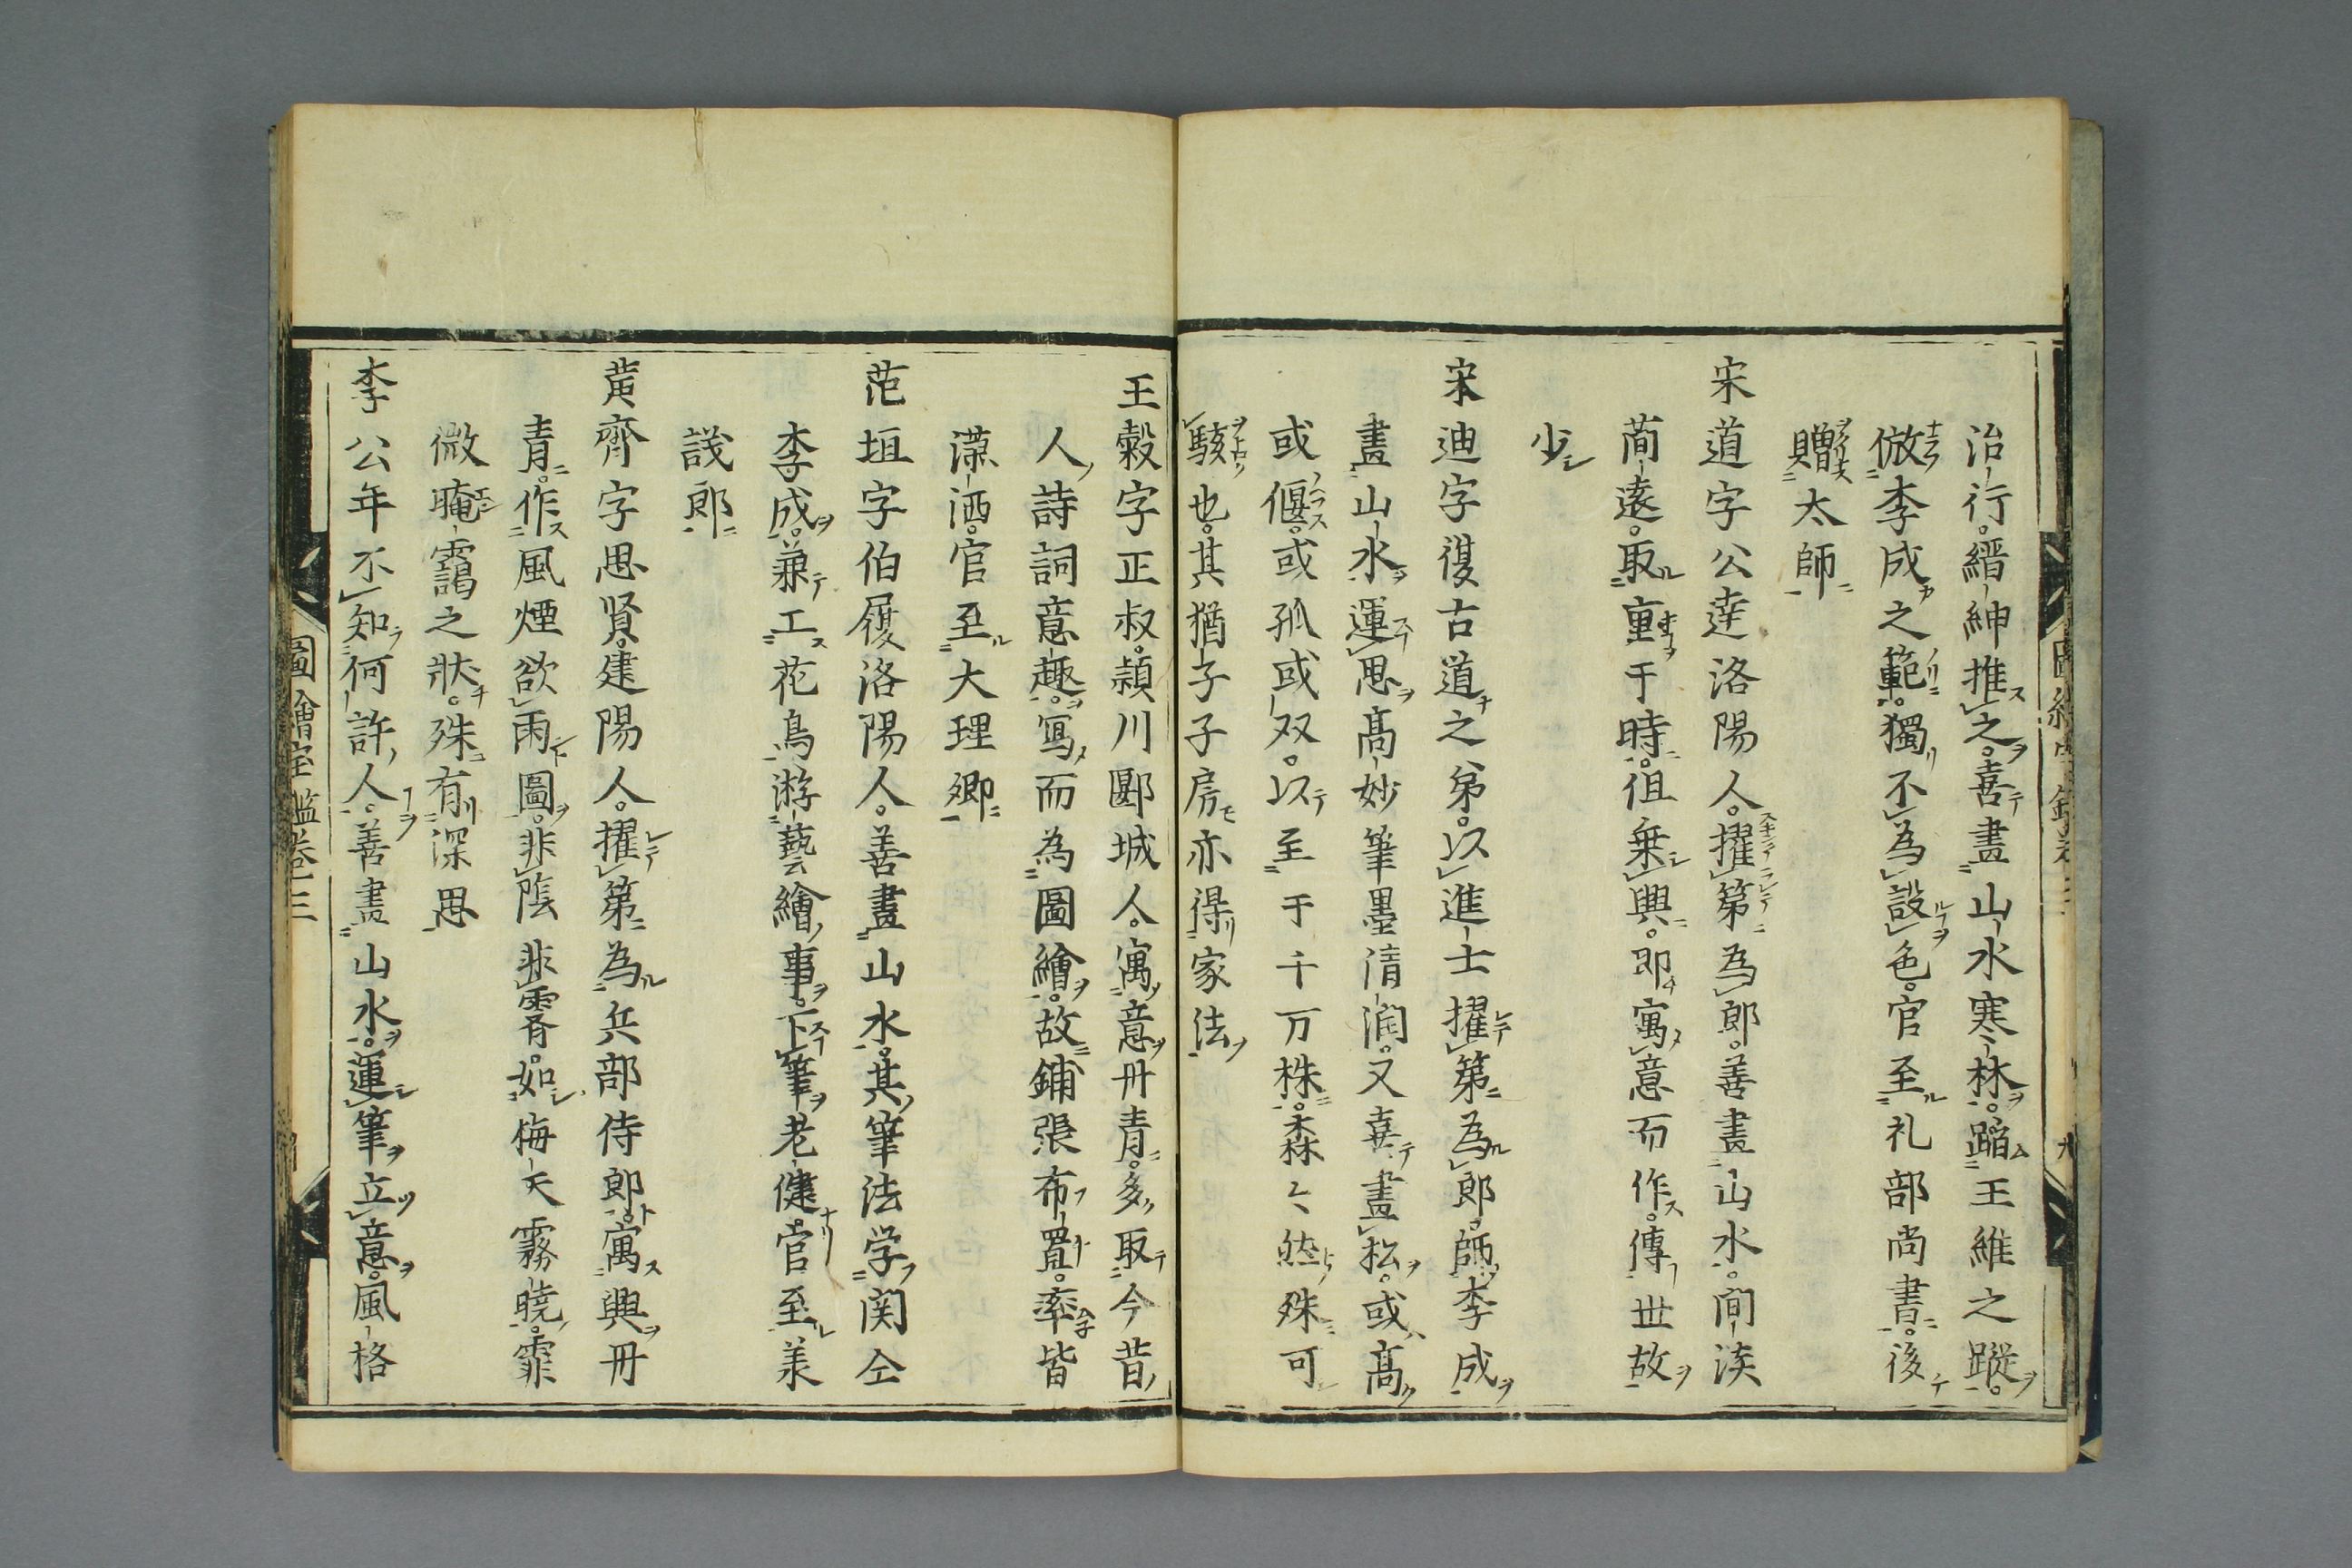 治行。縉紳推之。喜畫山水寒林。蹈王維之蹤。
倣李成之範。獨不為設色。官至礼部尚書。後
贈太師
宋道字公達洛陽人。擢第為郎。善畫山水。閒淡
簡遠。取重于時。但乗興。即寓意而作。傳世故
少
宋迪字復古道之弟。以進士擢第為郎。師李成
畫山水。運思高妙筆墨清潤。又喜畫松。或高
或偃。或孤或双。以至于千万株。森々然殊可
駭也。其猶子子房亦得家法
王穀字正叔。潁川郾城人。寓意丹青。多取今昔
人詩詞意趣。寫而為圖繪。故鋪張布置。率皆
瀟洒。官至大理卿
范垣字伯履洛陽人。善畫山水。其筆法学関仝
李成。兼工花鳥游藝繪事。下筆老健。官至羕
議郎
黄齊字思賢。建陽人。擢第為兵部侍郎。寓興丹
青。作風煙欲雨圖。非陰非霽。如梅天霧曉。霏
微晻靄之狀。殊有深思
李公年不知何許人。善畫山水。運筆立意。風格
圖繪宝鑑卷三
九